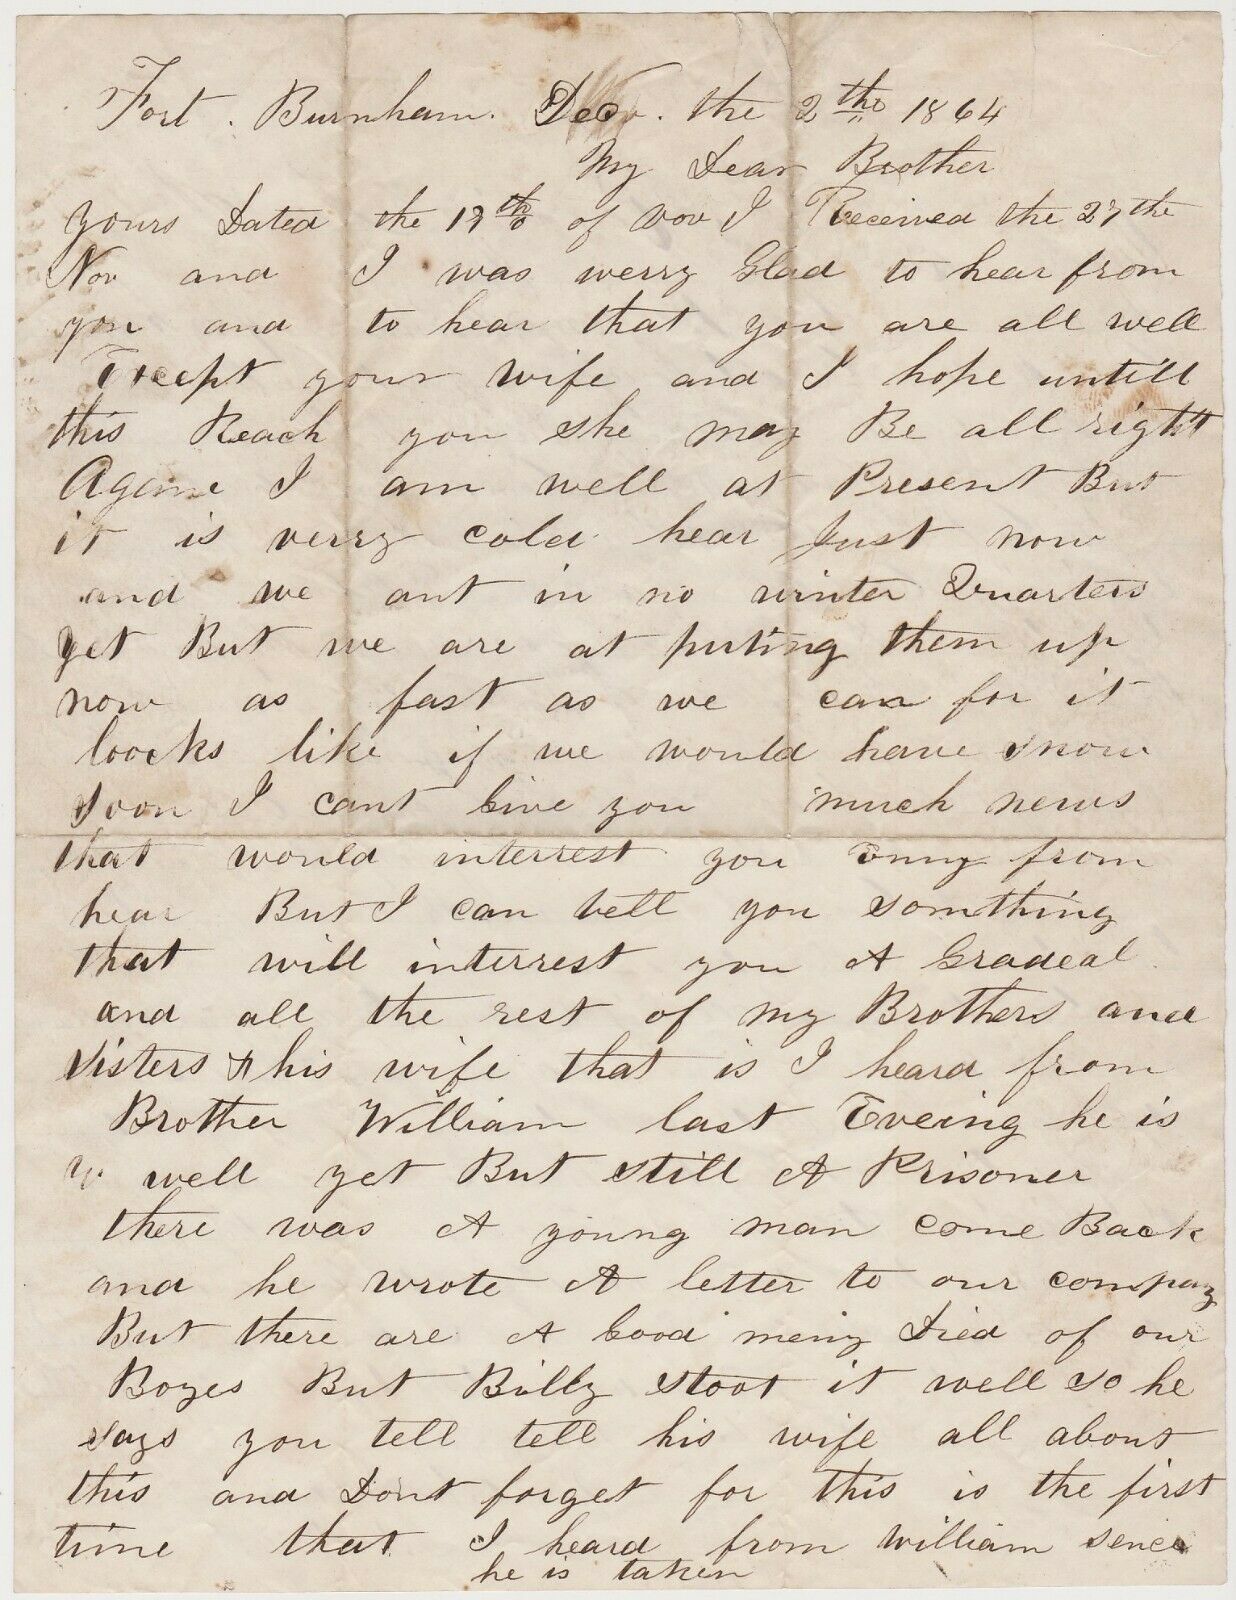 Fort. Burnham. Dec. the 2th 1864
My Dear Brother
yours Dated the 17th of Nov I Received the 27the
Nov and I was werry Glad to hear from
you and to hear that you are all well
Except your wife and I hope untill
this Reach you she may Be all right
Agene I am well at Present But
it is verry cold hear Just now
and we ant in no winter Quarters
yet But we are at puting them up
now as fast as we can for it
loocks like if we would have snow
soon I cant Give you much news
that would interrest you Enny from
hear But I can tell you somthing
that will interrest you A Gradeal
and all the rest of my Brothers and
Sisters & his wife that is I heard from
Brother William last Eveing he is
well yet But still A Prisoner
there was A young man come Back
and he wrote A letter to our compay
But there are A Good meny Died of our
Boyes But Billy stoot it well so he
says you tell tell his wife all about
this and Dont forget for this is the first
time that I heard from william sence
he is taken